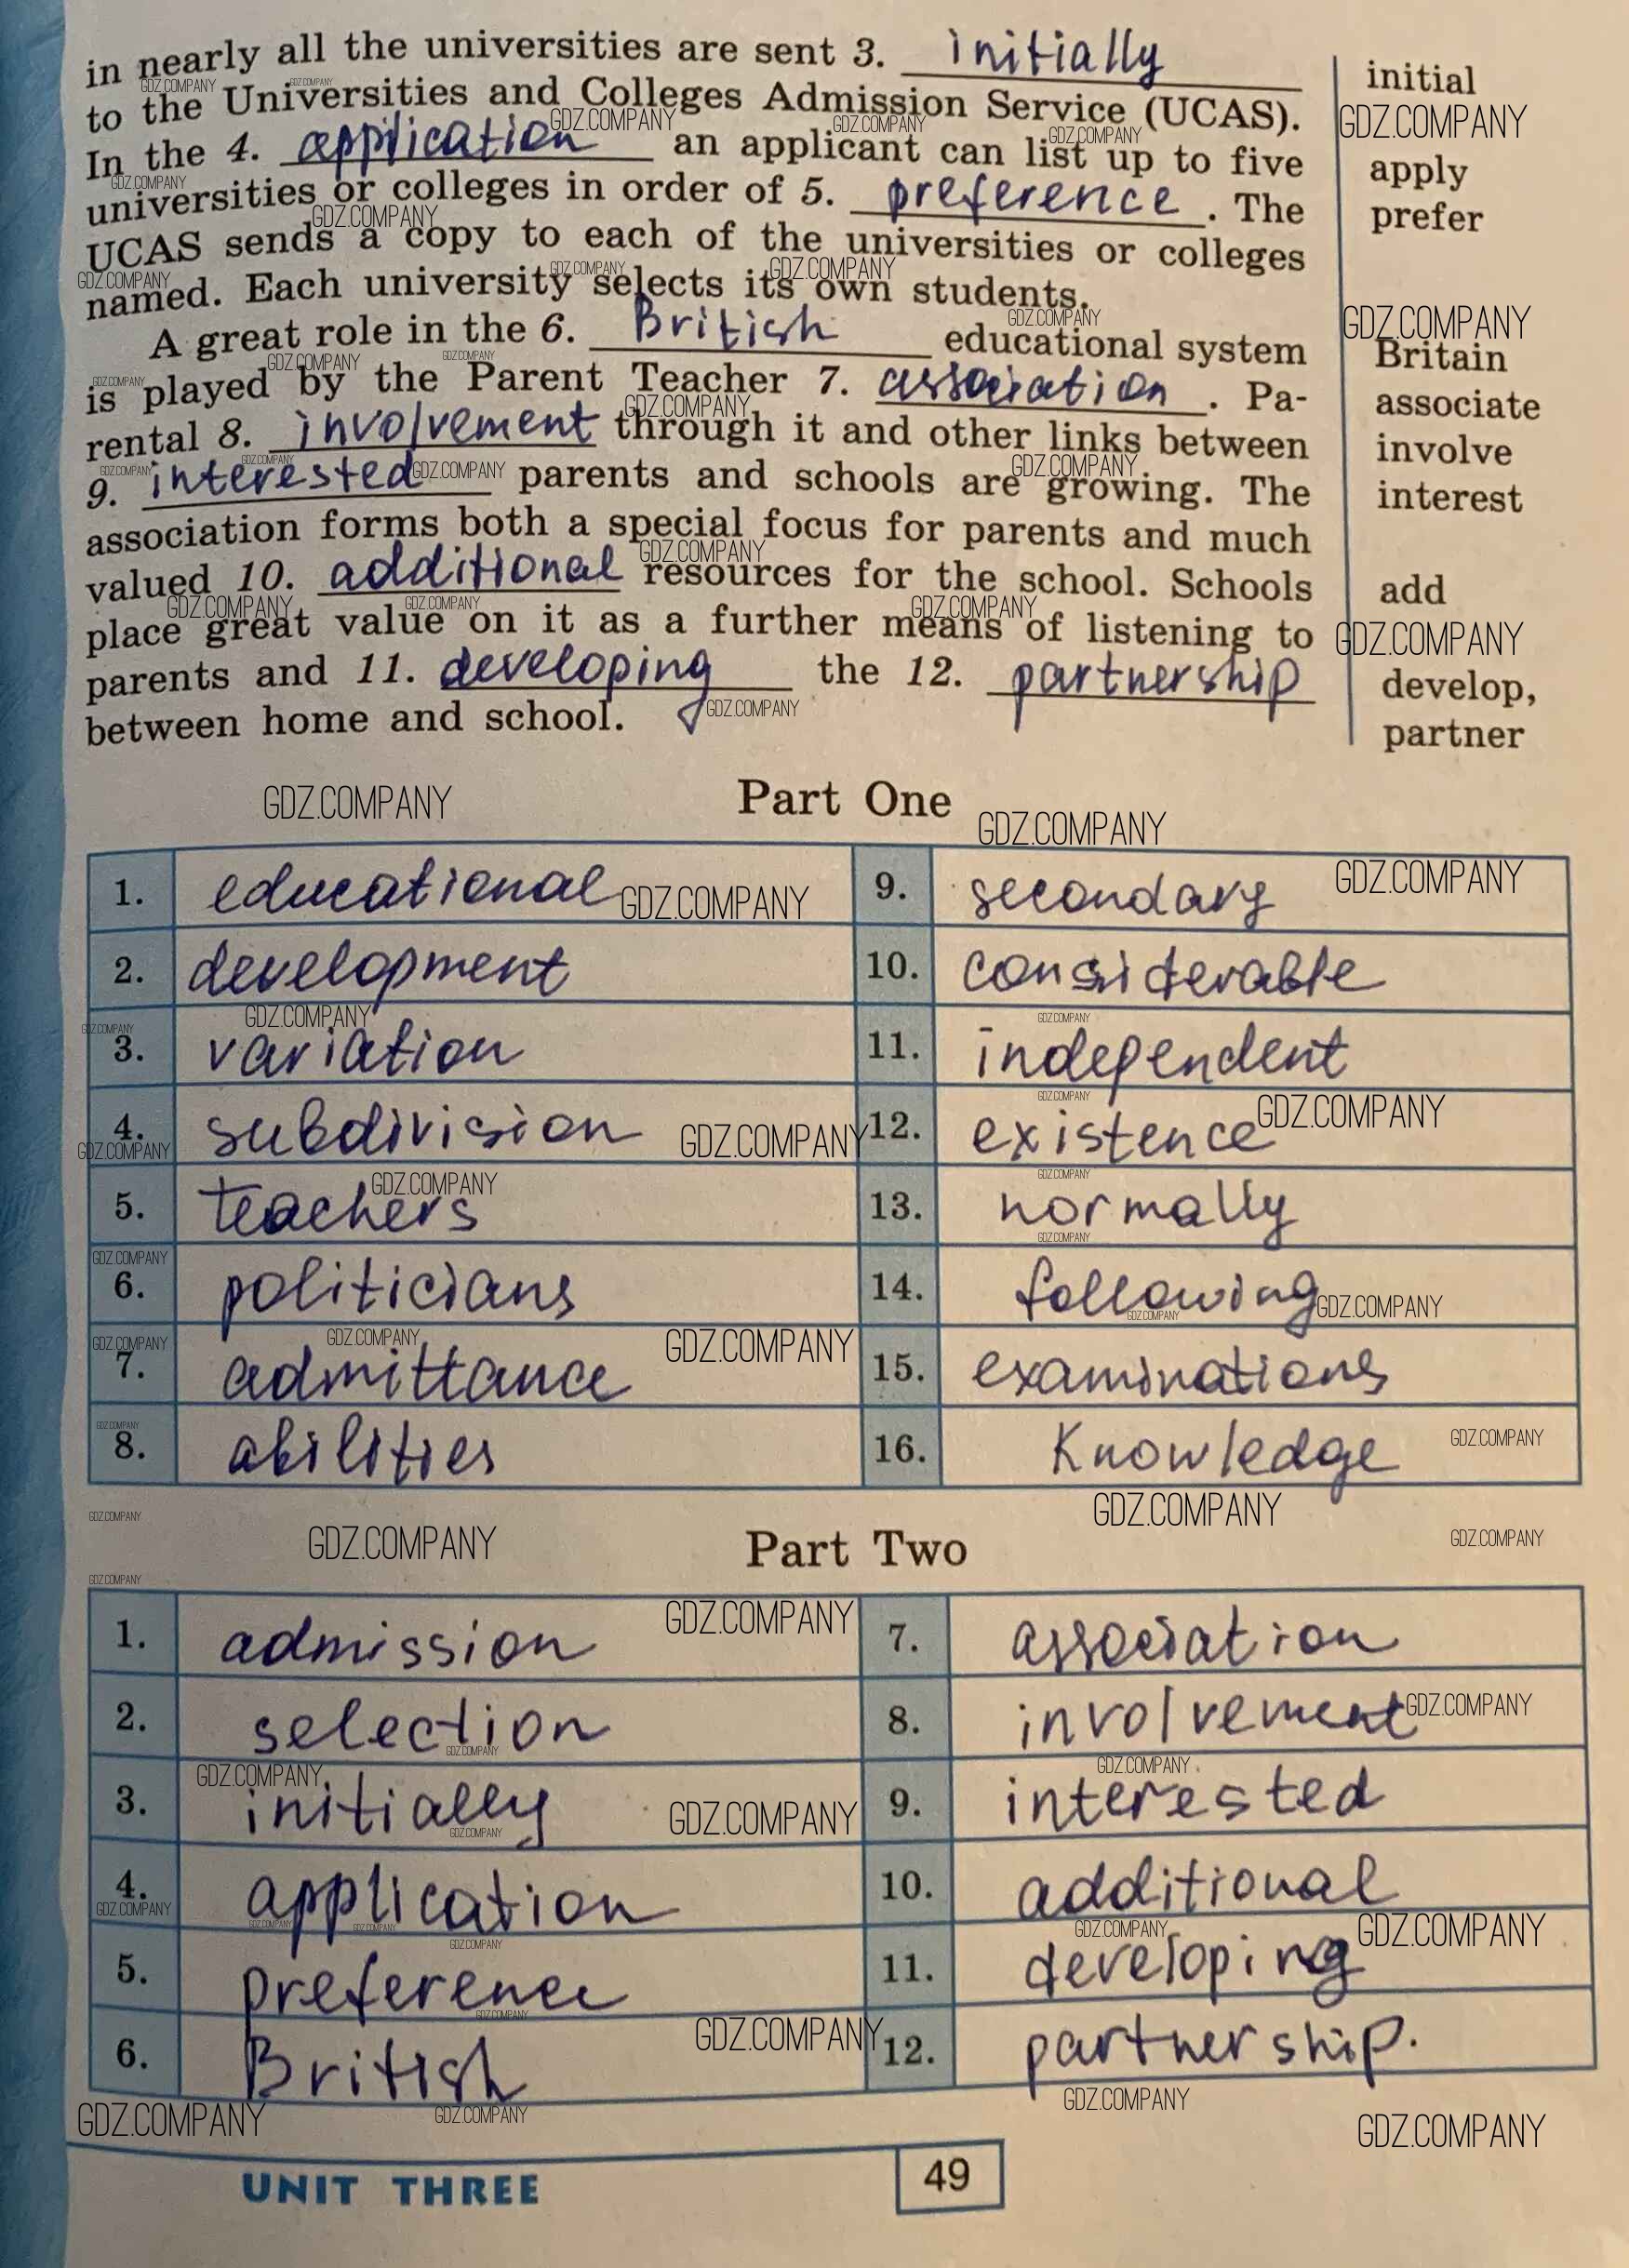 in nearly all the universities are sent 3. initially
to the Universities and Colleges Admission Service (UCAS).
In the 4. application an applicant can list up to five
universities or colleges in order of 5. preference. The
UCAS sends a copy to each of the universities or colleges
named. Each university selects its own students.
A great role in the 6. British educational system
is played by the Parent Teacher 7. association. Pa-
rental 8. involvement through it and other links between
9. interested parents and schools are growing. The
association forms both a special focus for parents and much
valued 10. additional resources for the school. Schools
place great value on it as a further means of listening to
parents and 11. developing the 12. partnership
between home and school.
initial
apply
prefer
Britain
associate
involve
interest
add
develop,
partner
GDZ.COMPANY
Part One
1. educational 9. secondary
2. development 10. considerable
3. variation 11. independent
4. subdivision 12. existence
5. teachers 13. normally
6. politicians 14. following
7. admittance 15. examinations
8. abilities 16. Knowledge
Part Two
1. admission 7. association
2. selection 8. involvement
3. initially 9. interested
4. application 10. additional
5. preference 11. developing
6. British 12. partnership.
UNIT THREE 49